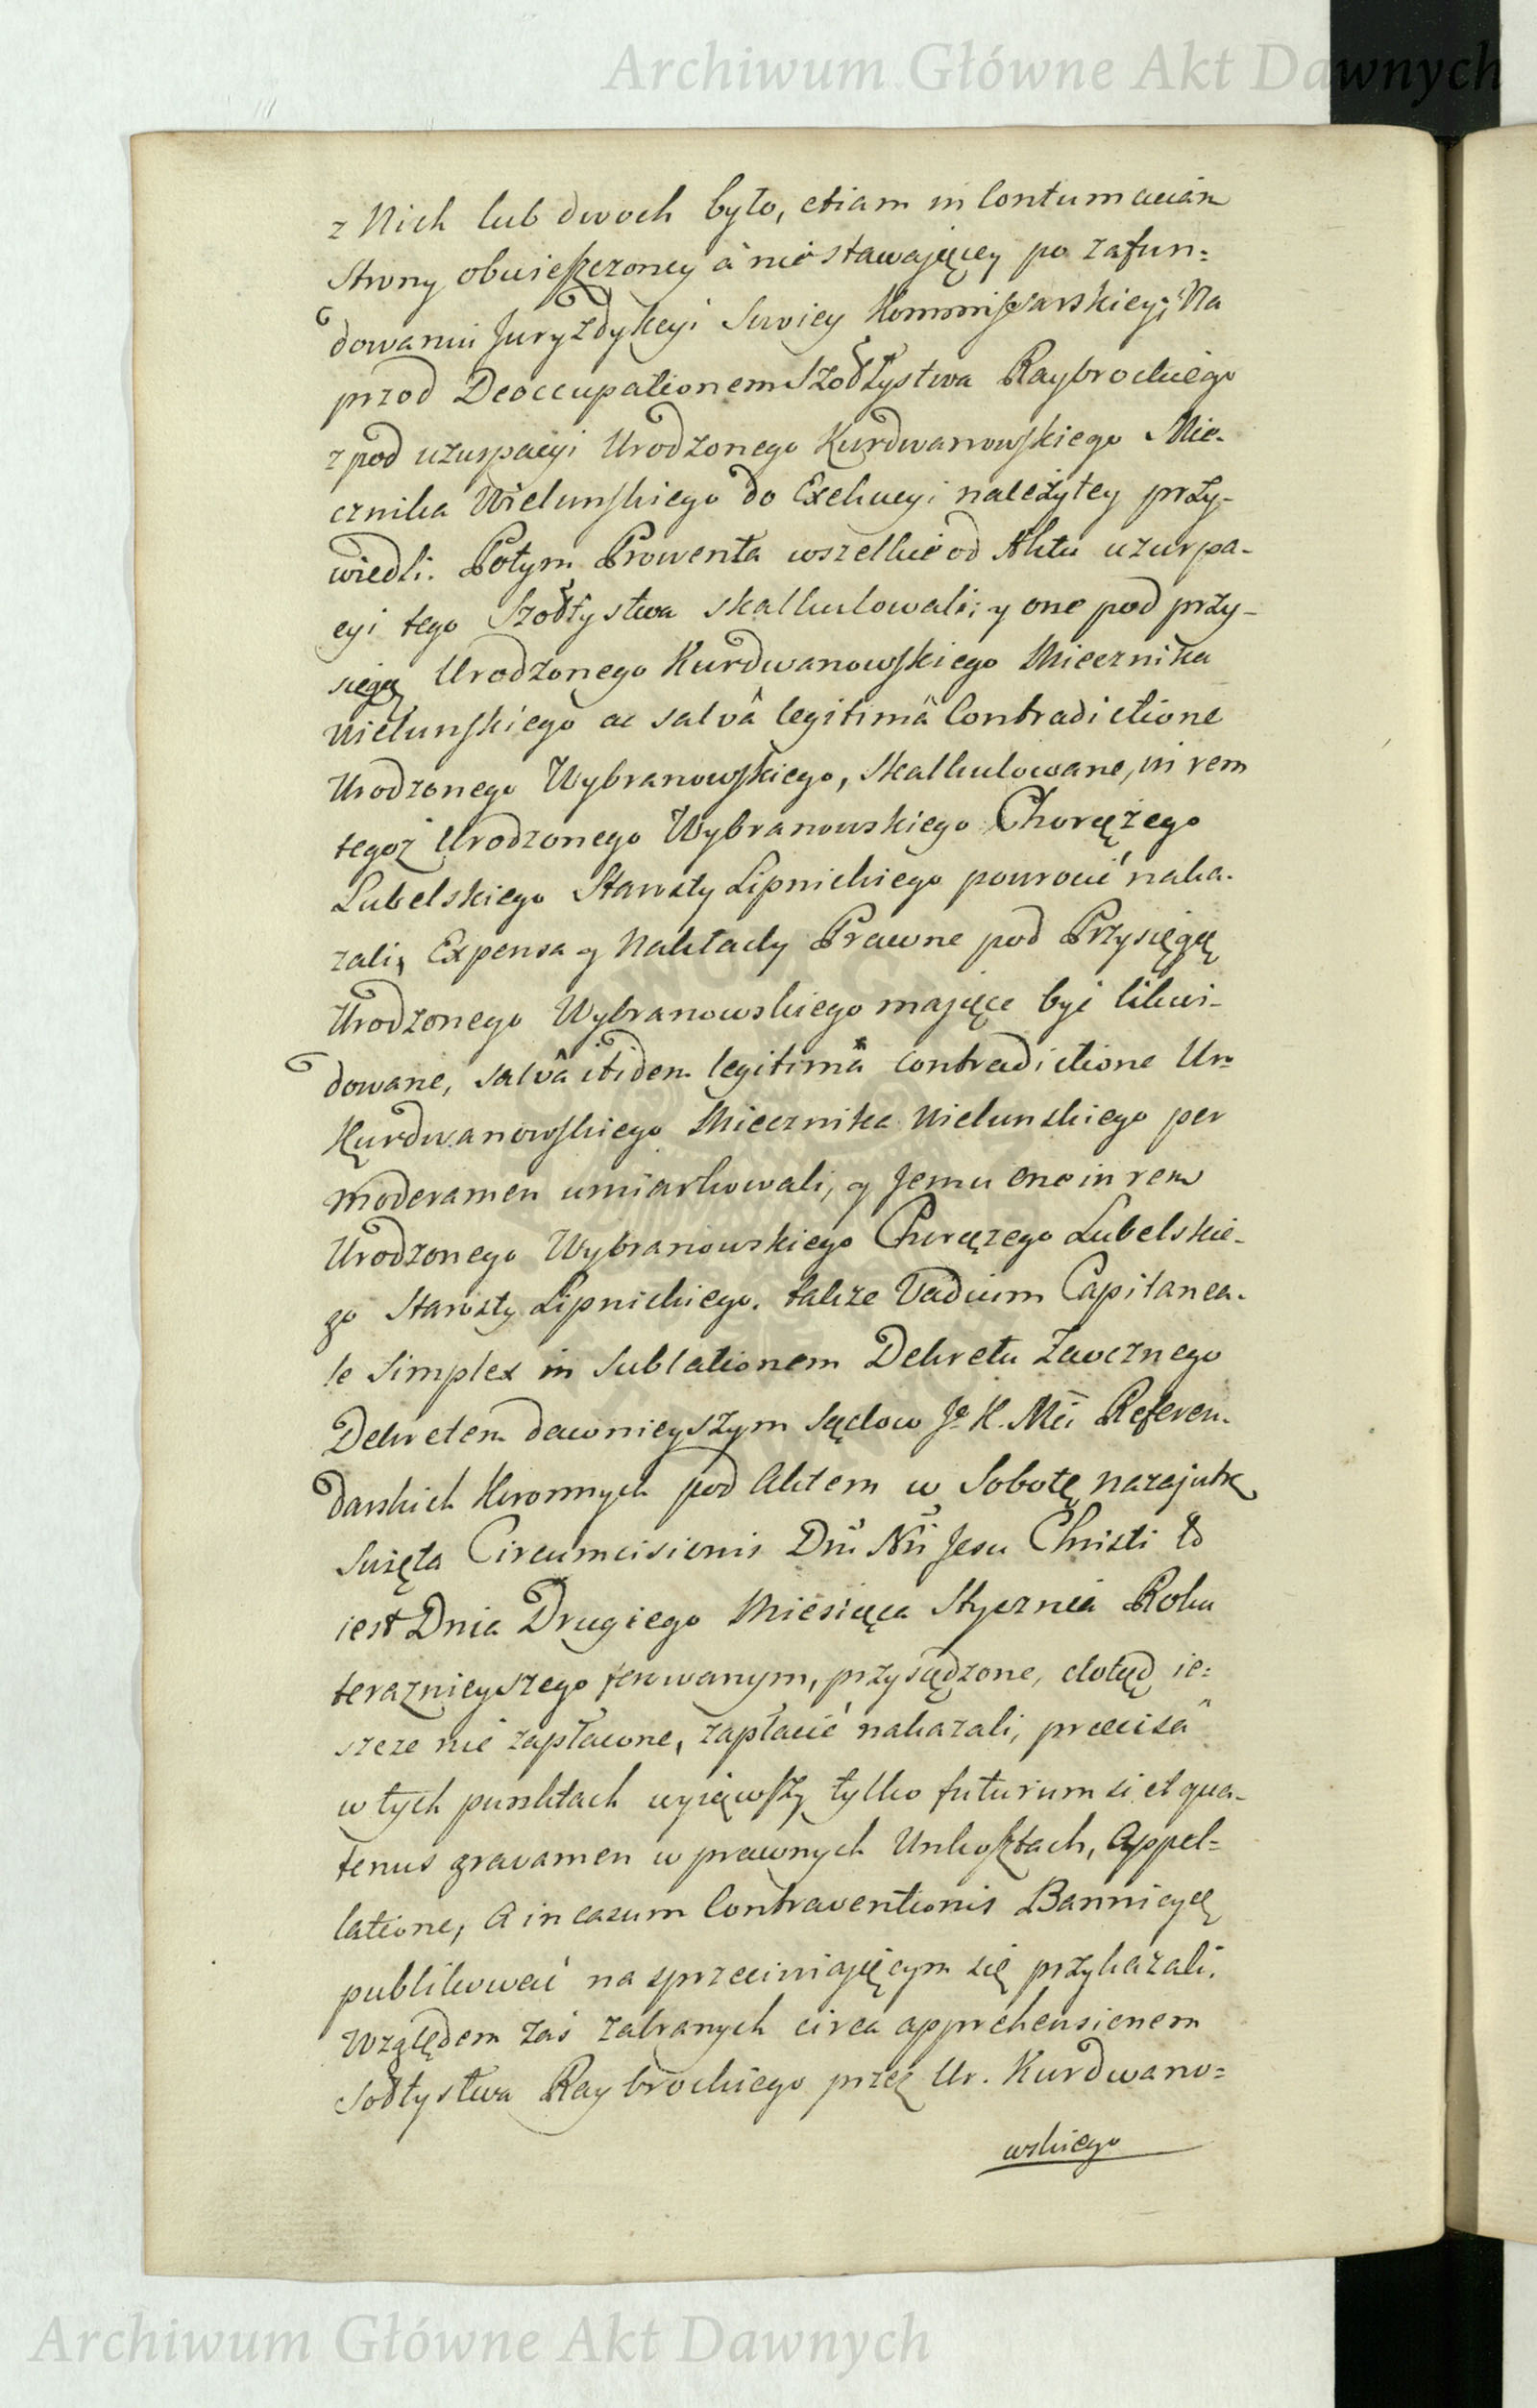 Archiwum Główne Akt Dawnych
z Nich lub dwoch było, etiam in Contumaciam
Strony obwieszczoney a nie stawaiącey po zafun=
dowaniu Juryzdykcyi Swoiey Kommissarskiey; Na
przod Deoccupationem Szołtystwa Raybrockiego
z pod uzurpacyi Urodzonego Kurdwanowskiego Mie-
cznika Wielunskiego do Exekucyi należytey przy-
wiedli. Potym Prowenta wszelkie od Aktu uzurpa-
cyi tego Szołtystwa skalkulowali; y one pod przy-
sięgą Urodzonego Kurdwanowskiego Miecznika
Wielunskiego ac salvâ legitimâ Contradictione
Urodzonego Wybranowskiego, skalkulowane, in rem
tegoż Urodzonego Wybranowskiego Chorążego
Lubelskiego Starosty Lipnickiego powrocić naka-
zali, Expensa y Nakłady Prawne pod Przysięgą
Urodzonego Wybranowskiego maiące byi likwi-
dowane, salvâ itidem legitimâ contradictione Ur=
Kurdwanowskiego Miecznika Wielunskiego per
moderamen umiarkowali, y Jemu one in rem
Urodzonego Wybranowskiego Chorążego Lubelskie-
go Starosty Lipnickiego. także Vadium Capitanea-
le Simplex in Sublationem Dekretu Zaocznego
Dekretem dawnieyszym Sądow Jº K. Mci Referen-
darskich Koronnych pod Aktem w Sobotę nazajutrz
Swięta Circumcisionis Dni Nri Jesu Christi to
iest Dnia Drugiego Miesiąca Stycznia Roku
teraznieyszego ferowanym, przysądzone, dotąd ie=
szcze nie zapłacone, zapłacić nakazali, præcisâ
w tych punktach wyiąwszy tylko futurum si et qua-
tenus gravamen w prawnych Unkosztach, Appel=
latione, a in casum Contraventionis Bannicyę
publikować na sprzeciwiaiącym się przykazali.
Względem zaś zabranych circa apprehensionem
Sołtystwa Raybrockiego przez Ur. Kurdwano=
wskiego
Archiwum Główne Akt Dawnych